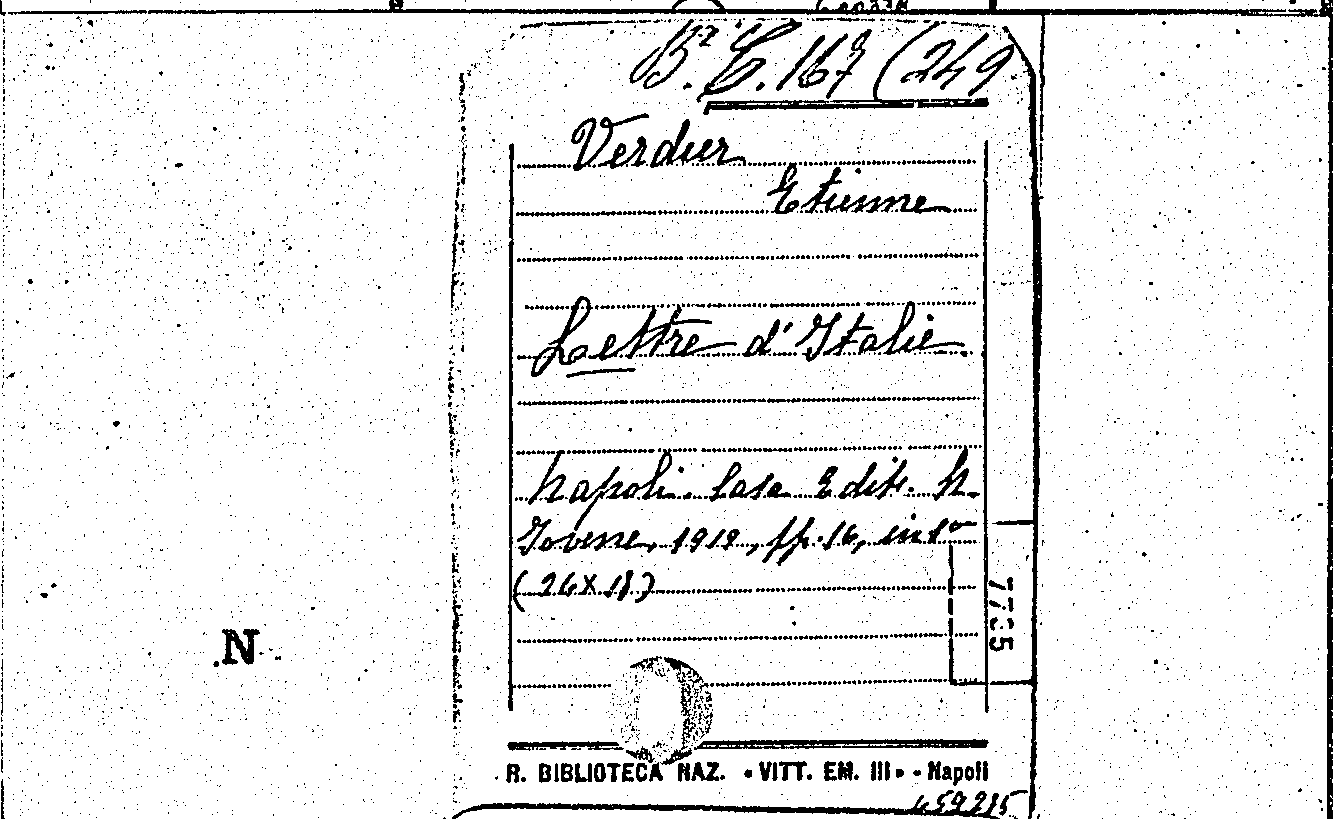 Bª. C. 167 (249
Verdur
Etienne
Lettre d'Italie.
Napoli. Casa Edit. N.
Jovene, 1919, pp. 16, in 8º
(26×18)
7735
N
R. BIBLIOTECA NAZ. «VITT. EM. III» - Napoli
459215